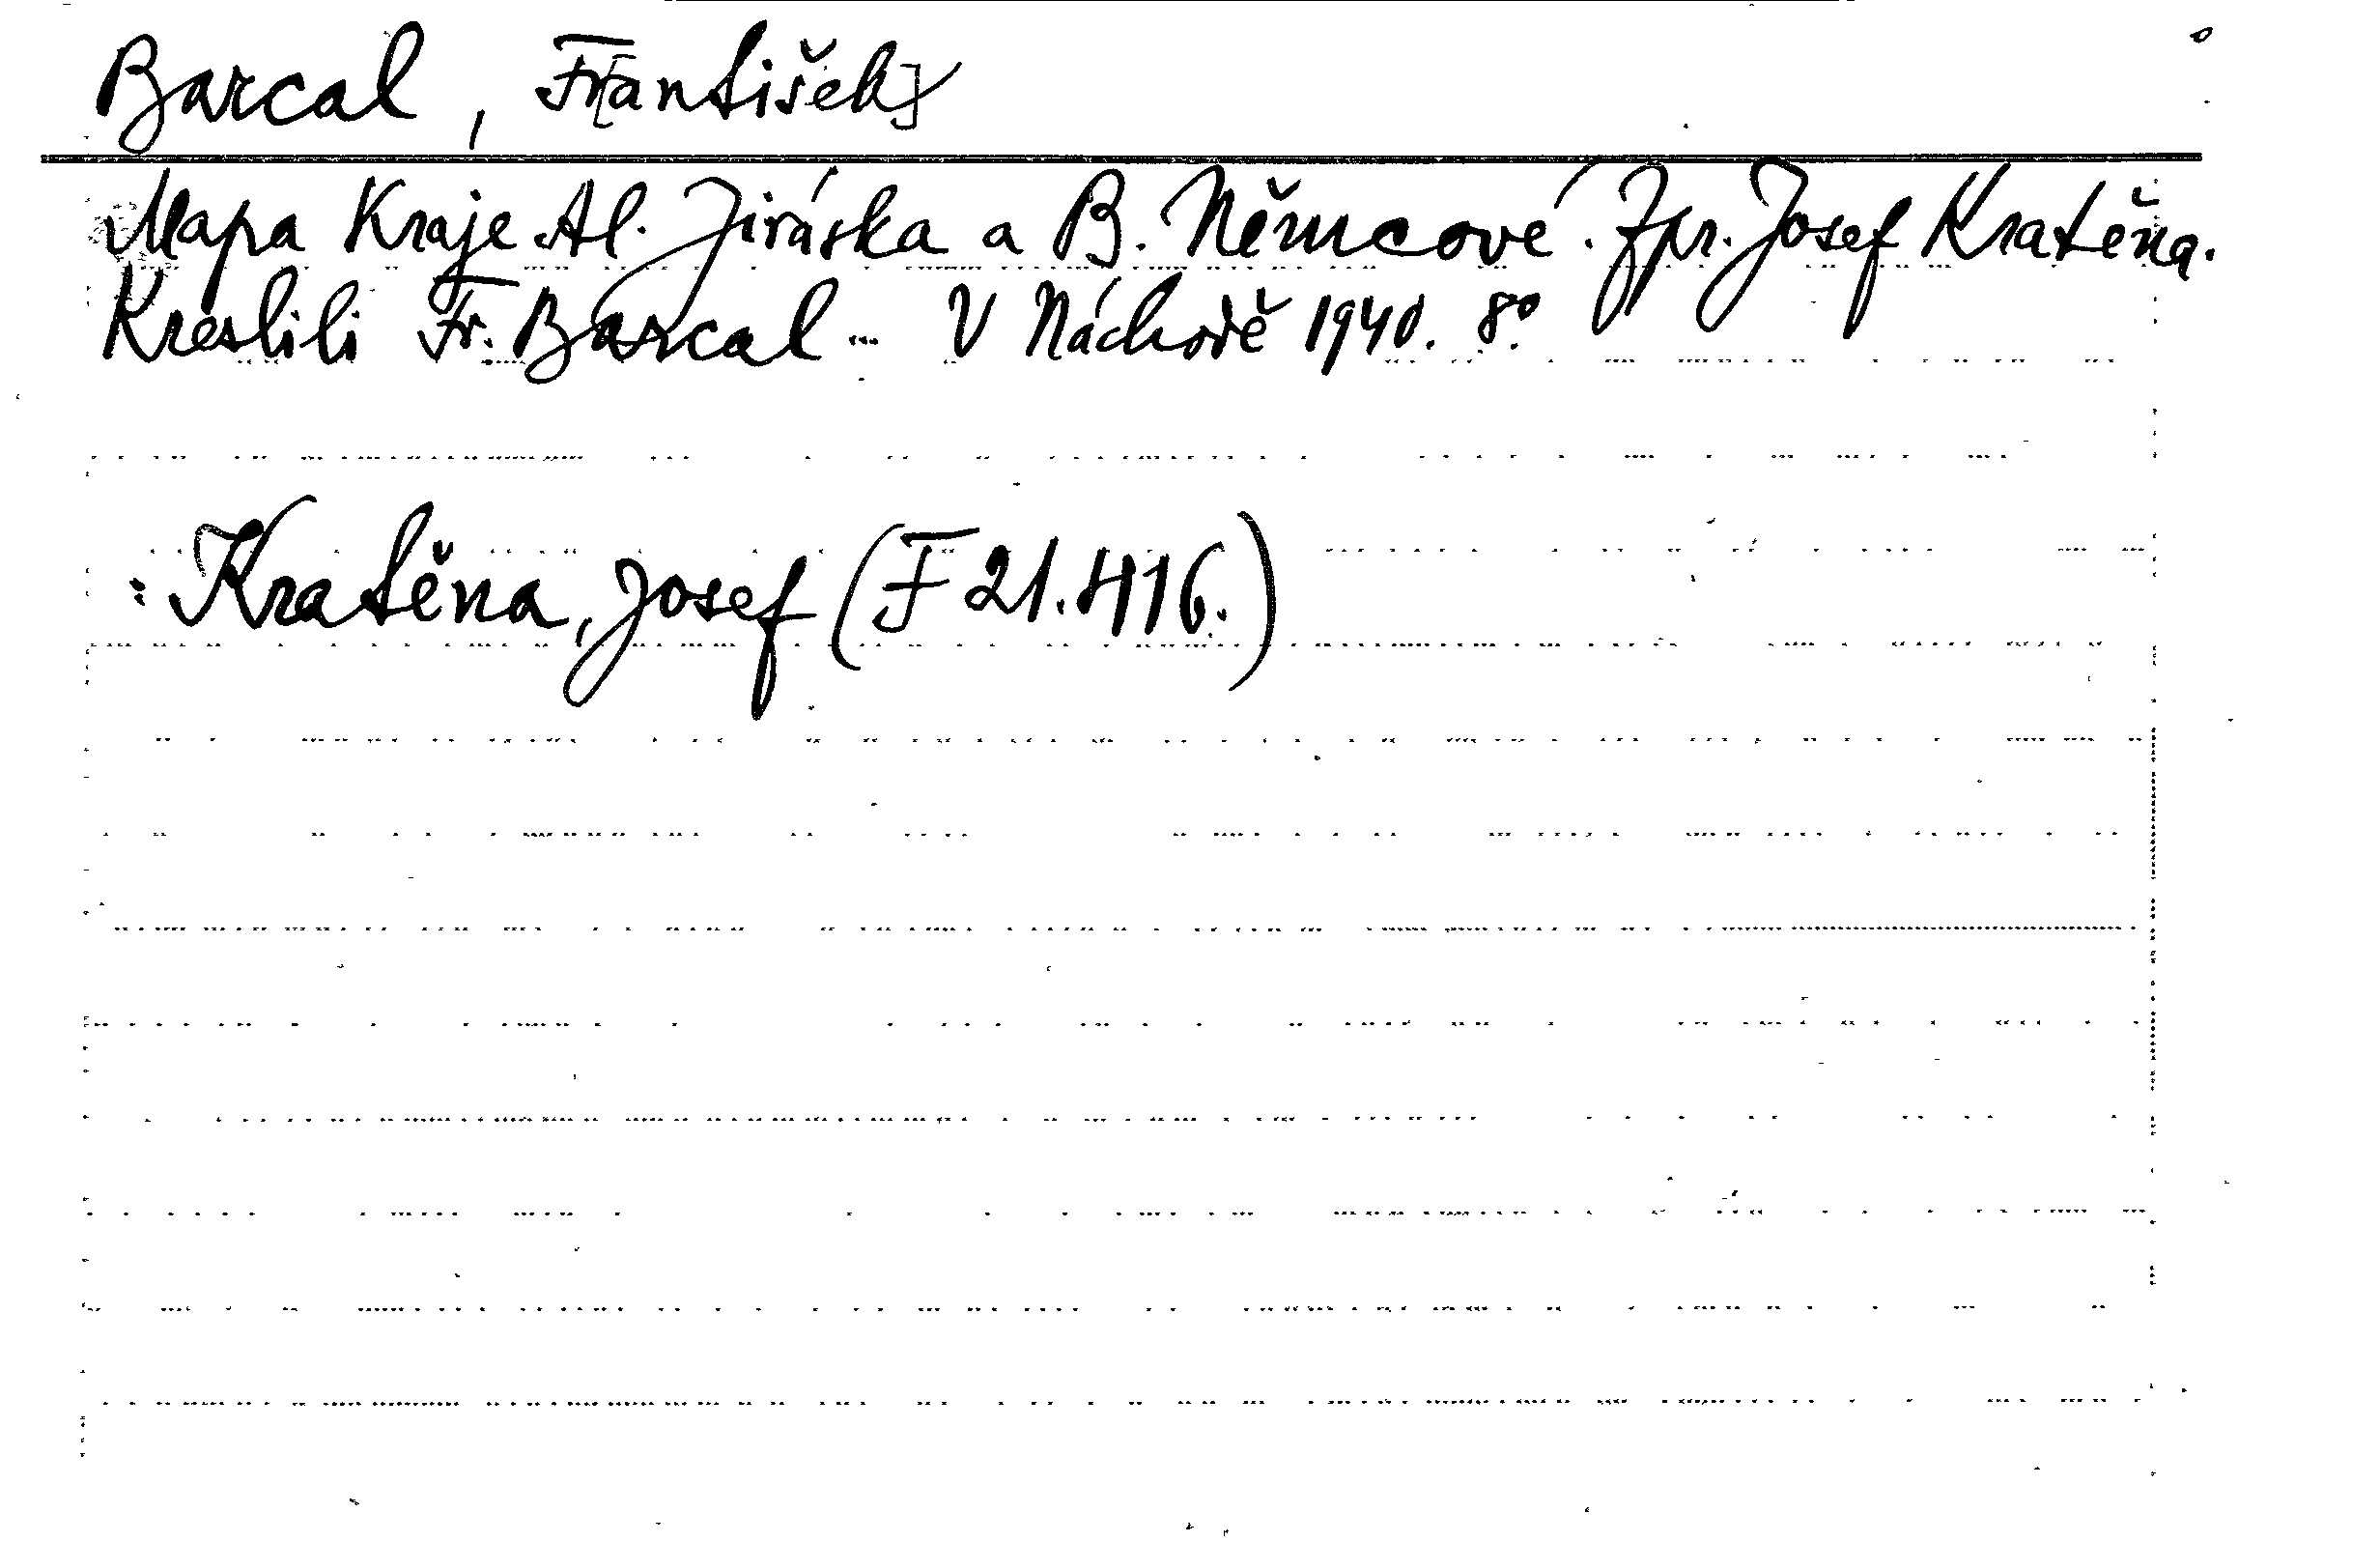 Barcal, Fr[antišek]
Mapa Kraje Al. Jiráska a B. Němcové. Zpr. Josef Kratěna.
Kreslili Fr. Barcal... V Náchodě 1940. 8°.
: Kratěna, Josef (F 21.416.)